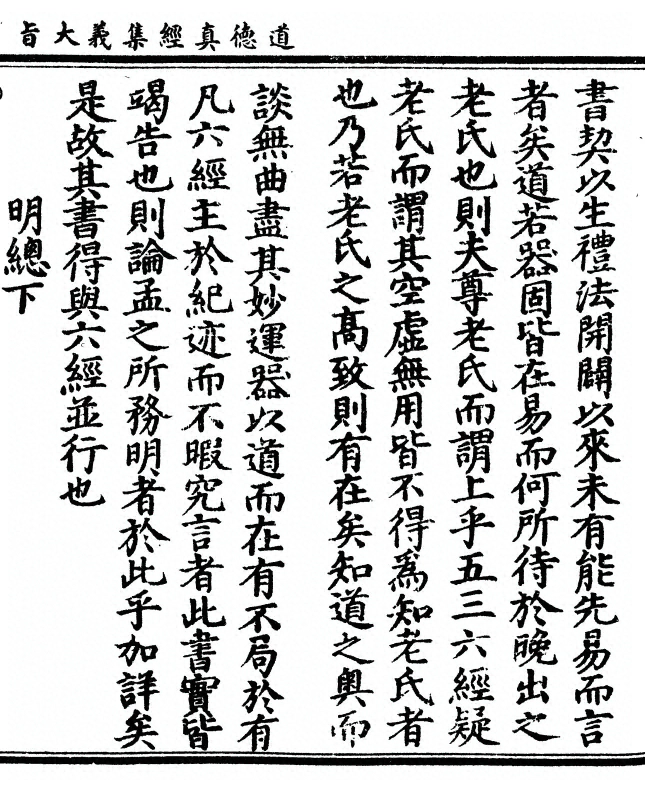 道德真經集義大旨
書契以生禮法開闢以來未有能先易而言
者矣道若器固皆在易而何所待於晚出之
老氏也則夫尊老氏而謂上乎五三六經疑
老氏而謂其空虛無用皆不得爲知老氏者
也乃若老氏之高致則有在矣知道之奧而
談無曲盡其妙運器以道而在有不局於有
凡六經主於紀迹而不暇究言者此書實皆
竭告也則論孟之所務明者於此乎加詳矣
是故其書得與六經並行也
明總下